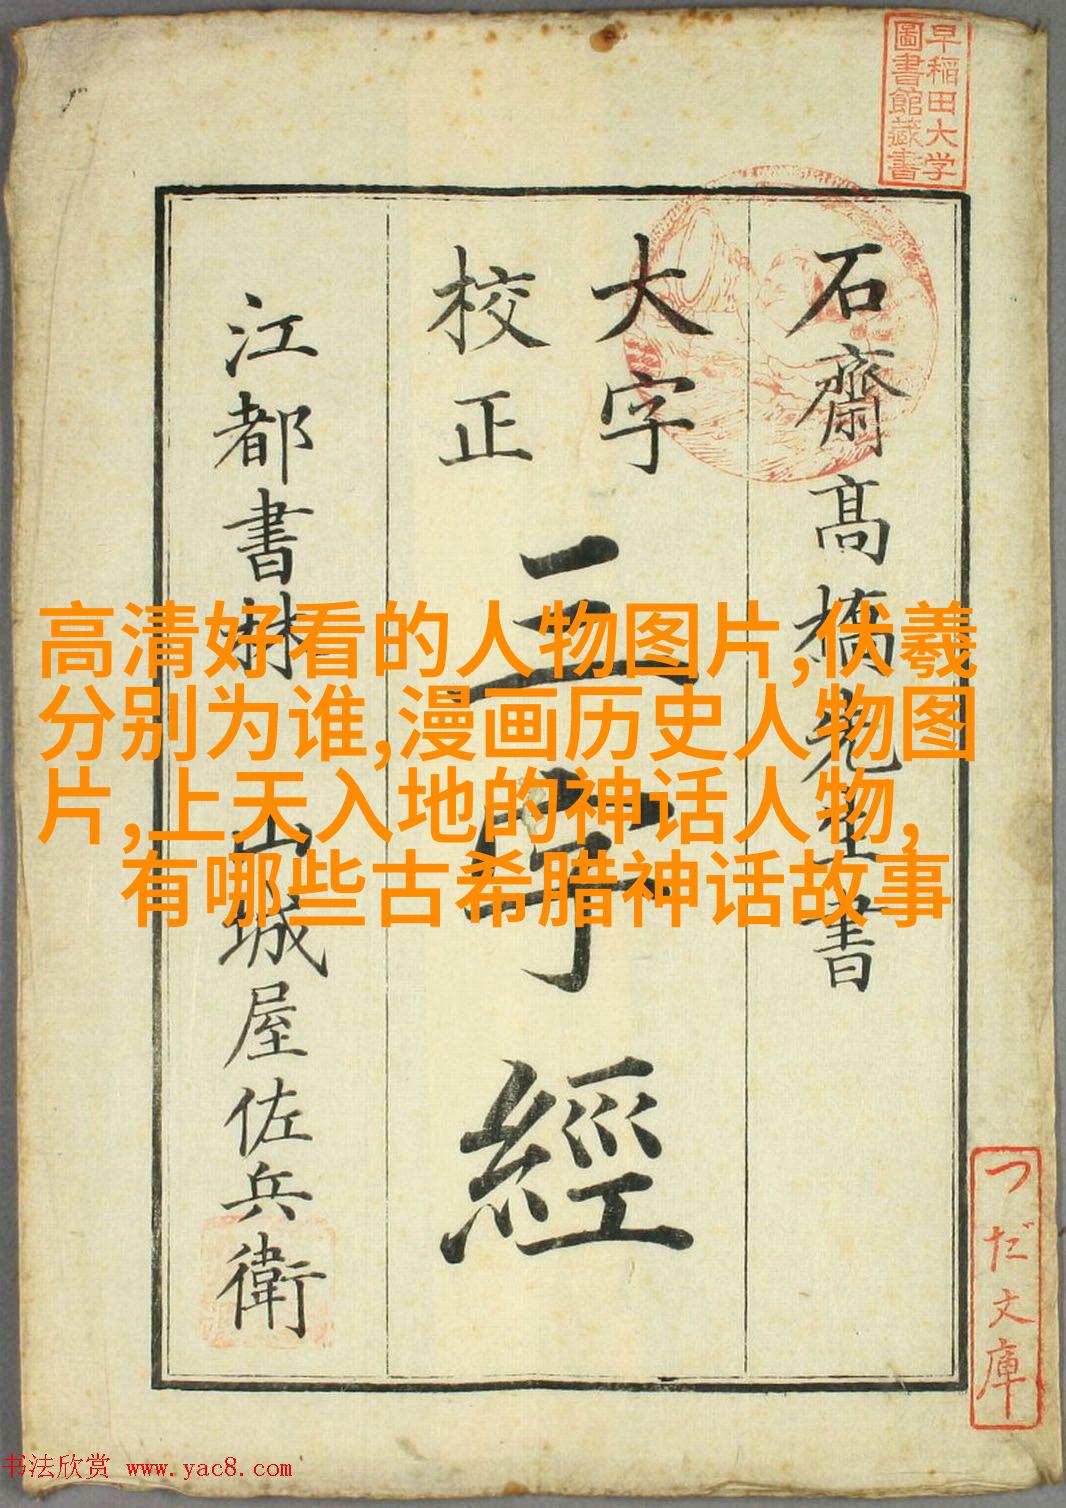 早稲田大学
圖書館藏書
石齋高橋先生書
大字
校正
三字經
江都書林 山城屋佐兵衛
高清好看的人物图片,伏羲
分别为谁,漫画历史人物图
片,上天入地的神话人物,
有哪些古希腊神话故事
つだ文庫
书法欣赏 www.yac8.com